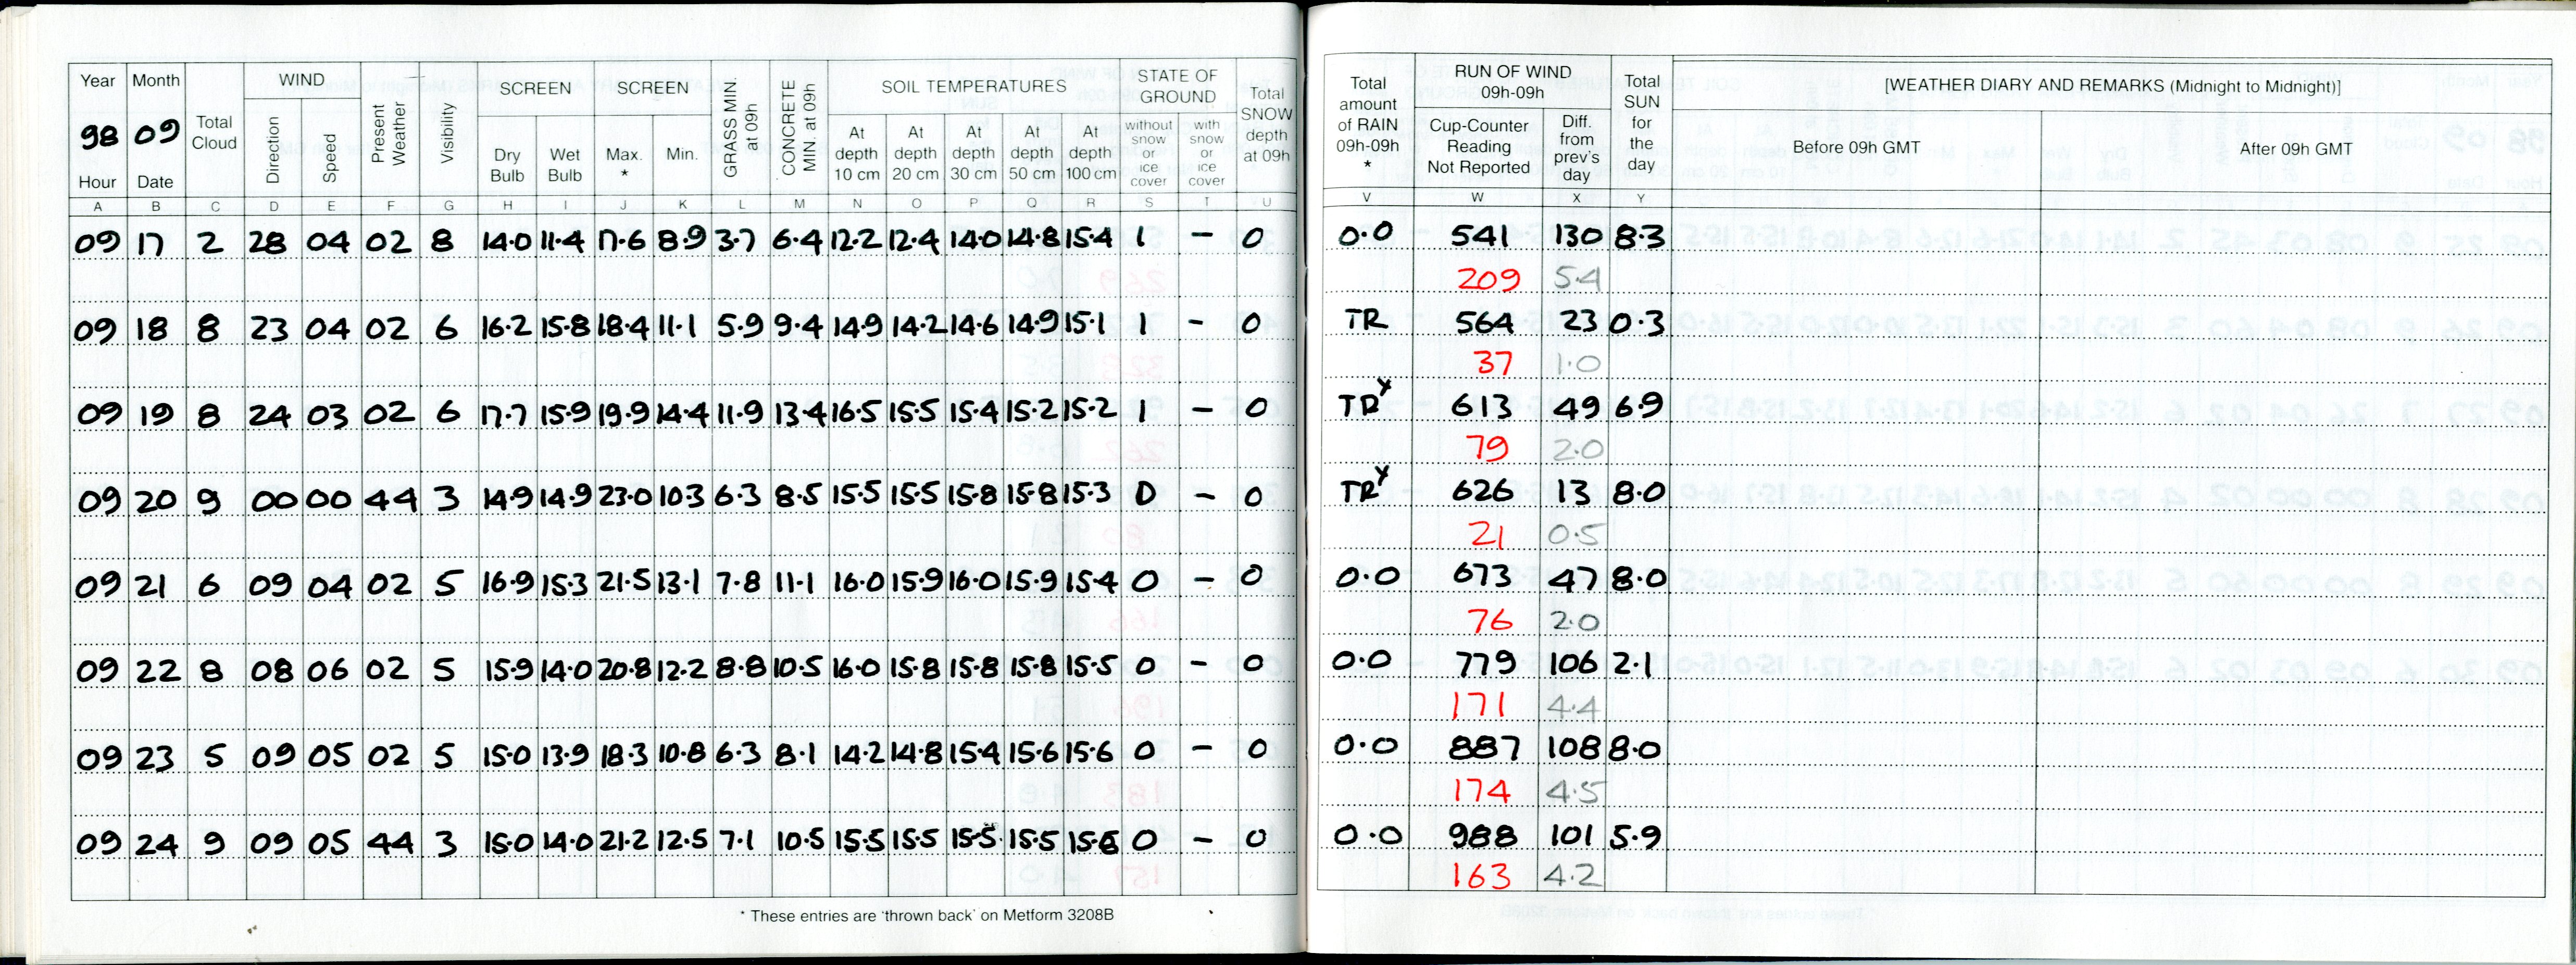 Year Month Total Cloud WIND Present Weather Visibility SCREEN SCREEN GRASS MIN. at 09h CONCRETE MIN. at 09h SOIL TEMPERATURES STATE OF GROUND Total SNOW depth at 09h Total amount of RAIN 09h-09h * RUN OF WIND 09h-09h Total SUN for the day [WEATHER DIARY AND REMARKS (Midnight to Midnight)]
98 09 Direction Speed Dry Bulb Wet Bulb Max. * Min. At depth 10 cm At depth 20 cm At depth 30 cm At depth 50 cm At depth 100 cm without snow or ice cover with snow or ice cover Cup-Counter Reading Not Reported Diff. from prev's day Before 09h GMT After 09h GMT
Hour Date
A B C D E F G H I J K L M N O P Q R S T U V W X Y
09 17 2 28 04 02 8 14.0 11.4 17.6 8.9 3.7 6.4 12.2 12.4 14.0 14.8 15.4 1 - 0 0.0 541 130 8.3
209 5.4
09 18 8 23 04 02 6 16.2 15.8 18.4 11.1 5.9 9.4 14.9 14.2 14.6 14.9 15.1 1 - 0 TR 564 23 0.3
37 1.0
09 19 8 24 03 02 6 17.7 15.9 19.9 14.4 11.9 13.4 16.5 15.5 15.4 15.2 15.2 1 - 0 TRY 613 49 6.9
79 2.0
09 20 9 00 00 44 3 14.9 14.9 23.0 10.3 6.3 8.5 15.5 15.5 15.8 15.8 15.3 0 - 0 TRY 626 13 8.0
21 0.5
09 21 6 09 04 02 5 16.9 15.3 21.5 13.1 7.8 11.1 16.0 15.9 16.0 15.9 15.4 0 - 0 0.0 673 47 8.0
76 2.0
09 22 8 08 06 02 5 15.9 14.0 20.8 12.2 8.8 10.5 16.0 15.8 15.8 15.8 15.5 0 - 0 0.0 779 106 2.1
171 4.4
09 23 5 09 05 02 5 15.0 13.9 18.3 10.8 6.3 8.1 14.2 14.8 15.4 15.6 15.6 0 - 0 0.0 887 108 8.0
174 4.5
09 24 9 09 05 44 3 15.0 14.0 21.2 12.5 7.1 10.5 15.5 15.5 15.5 15.5 15.6 0 - 0 0.0 988 101 5.9
163 4.2
* These entries are 'thrown back' on Metform 3208B